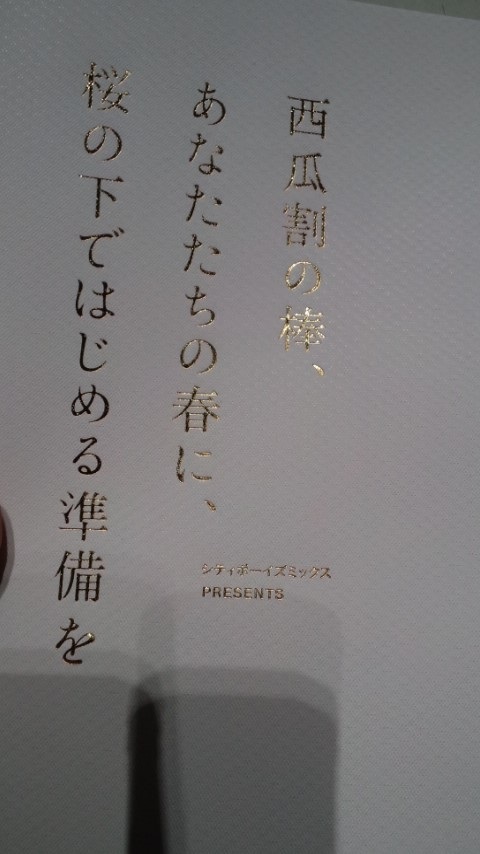 西瓜割の棒、
あなたたちの春に、
桜の下ではじめる準備を
シティボーイズミックス
PRESENTS